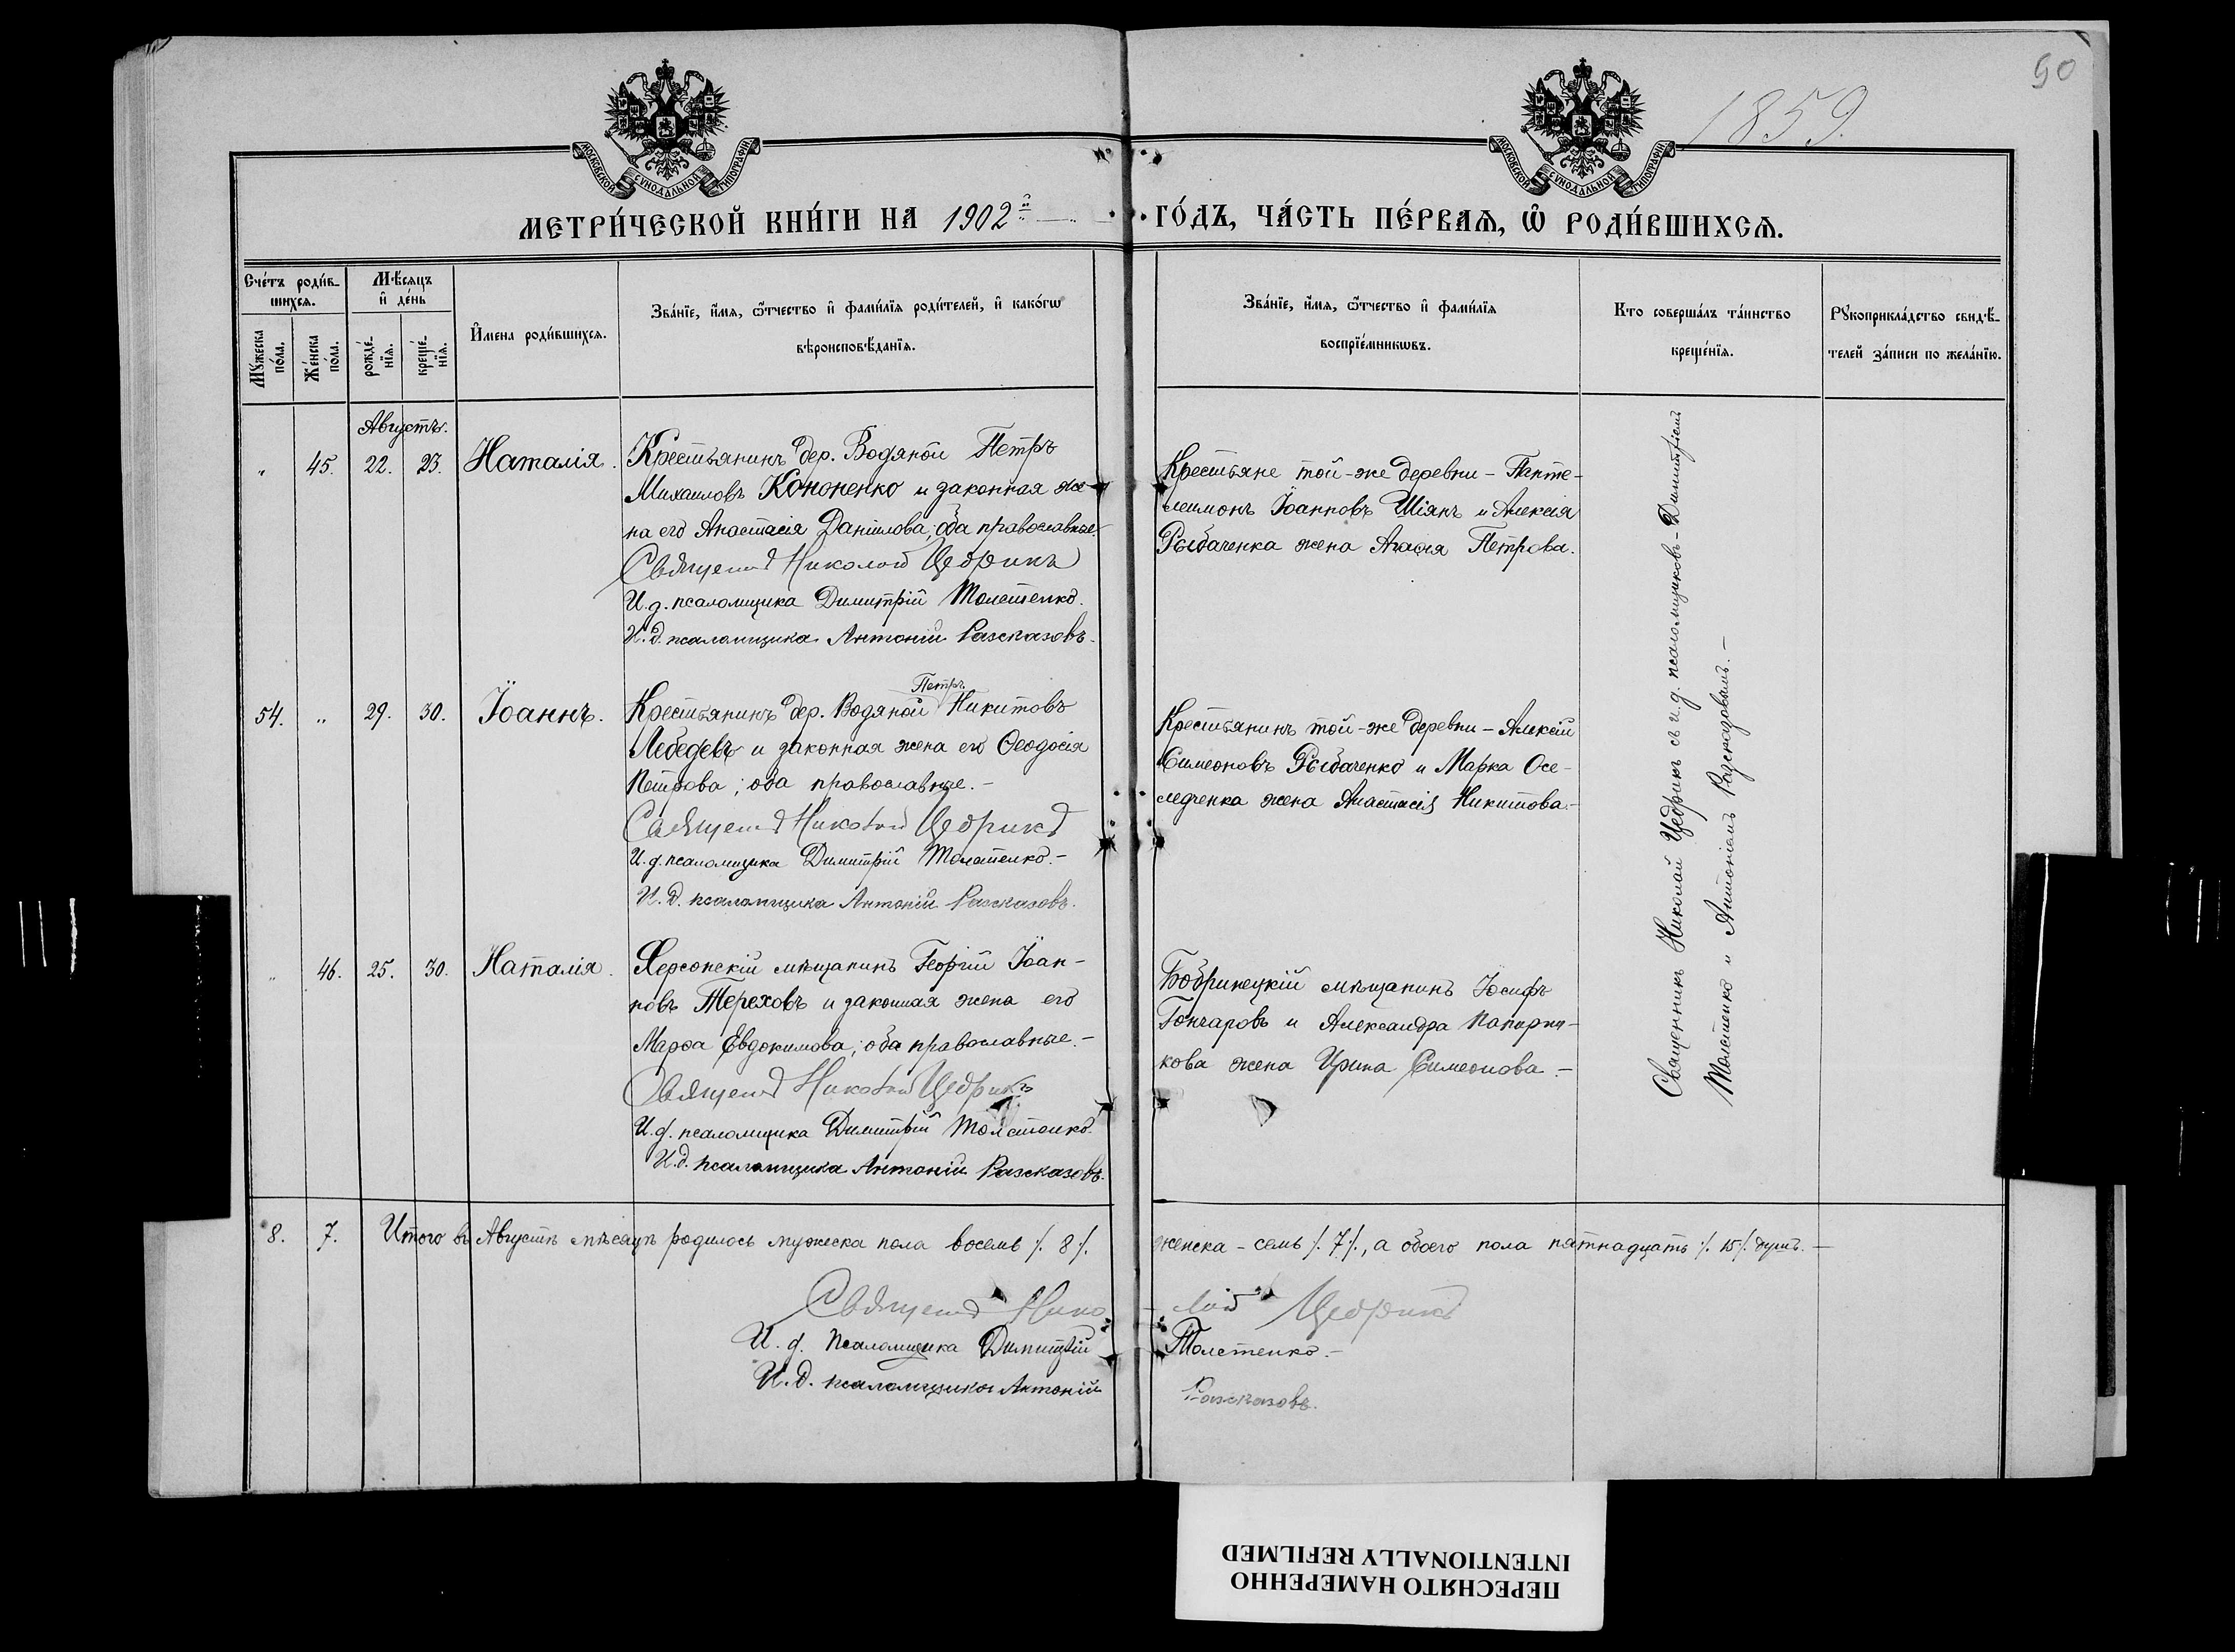 90
1859.
МОСКОВСКОЙ СѴНОДАЛЬНОЙ ТИПОГРАФІИ
МОСКОВСКОЙ СѴНОДАЛЬНОЙ ТИПОГРАФІИ
МЕТРИ́ЧЕСКОЙ КНИ́ГИ НА 1902й ГО́ДЪ, ЧА́СТЬ ПЕ́РВАѦ, Ѡ҆ РОДИ́ВШИХСѦ.
Сче́тъ роди́в-
шихсѧ.
Мꙋ́жеска
по́ла.
Же́нска
по́ла.
Мѣ́сѧцъ
и҆ де́нь
рожде́-
нїѧ.
креще́-
нїѧ.
И҆мена роди́вшихсѧ.
Зва́нїе, и҆́мѧ, ѻ҆́тчество и҆ фами́лїѧ роди́телей, и҆ како́гѡ
вѣроисповѣ́данїѧ.
Зва́нїе, и҆́мѧ, ѻ҆́тчество и҆ фами́лїѧ
воспрїе́мникѡвъ.
Кто соверша́лъ та́инство
креще́нїѧ.
Рꙋкоприкла́дство свидѣ́-
телей за́писи по жела́нїю.
Августъ.
„ 45. 22. 23. Наталія.
Крестьянинъ дер. Водяной Петръ
Михаиловъ Кононенко и законная же-
на его Анастасія Даніилова; оба православные.
Священ. Николай Цедрикъ
И. д. псаломщика Димитрій Толстенко.
И. д. псаломщика Антоній Разсказовъ.
Крестьяне той-же деревни – Панте-
леимонъ Іоанновъ Шіянъ и Алексія
Рыбаченка жена Агафія Петрова.
54. „ 29. 30. Іоаннъ.
Петръ
Крестьянинъ дер. Водяной Никитовъ
Лебедевъ и законная жена его Ѳеодосія
Петрова; оба православные. –
Священ. Николай Цедрикъ
И. д. псаломщика Димитрій Толстенко. –
И. д. псаломщика Антоній Разсказовъ.
Крестьянинъ той-же деревни – Алексій
Симеоновъ Рыбаченко и Марка Осе-
ледченка жена Анастасія Никитова. –
„ 46. 25. 30. Наталія.
Херсонскій мѣщанинъ Георгій Іоан-
новъ Тереховъ и законная жена его
Марѳа Евдокимова; оба православные. –
Священ. Николай Цедрикъ
И. д. псаломщика Димитрій Толстенко.
И. д. псаломщика Антоній Разсказовъ.
Бобринецкій мѣщанинъ Іосифъ
Гончаровъ и Александра
кова жена Ирина Симеонова. –
Священникъ Николай Цедрикъ съ и. д. псаломщиковъ – Димитріемъ
Толстенко и Антоніемъ Разсказовымъ. –
8. 7. Итого въ Августѣ мѣсяцѣ родилось мужеска пола восемь /. 8 /. женска – семь /. 7 /., а обоего пола пятнадцать /. 15 /. душъ. –
Священ. Нико-лай Цедрикъ
И. д. псаломщика Димитрій Толстенко. –
И. д. псаломщика Антоній Разсказовъ.
ПЕРЕСНЯТО НАМЕРЕННО
INTENTIONALLY REFILMED